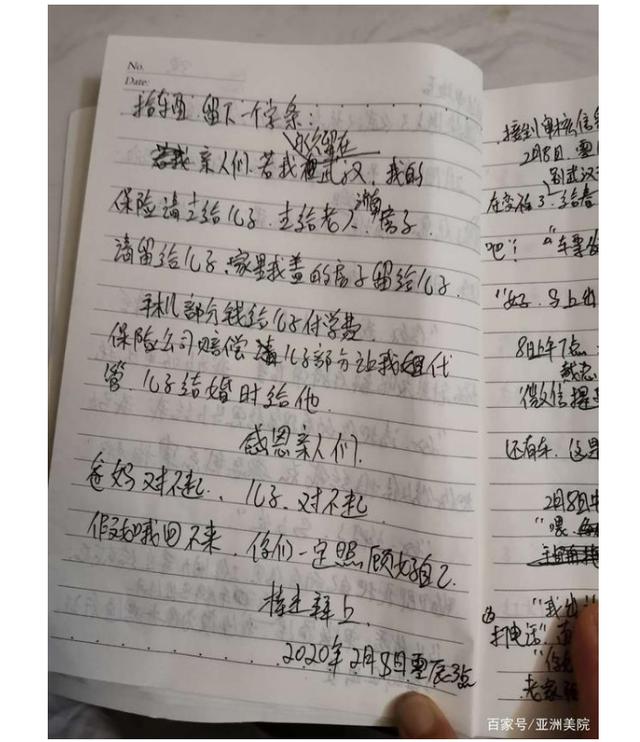 No.
Date:
抬东西留下一个字条：
永久留在
亲人们.若我武汉，我的
湖南
保险请主给儿子.主给老人.房子
请留给儿子.家里我盖的房子留给儿子.
手机部分钱给儿子付学费.
保险公司赔偿儿子部分让我姐代
管.儿子结婚时给他.
感恩亲人们.
爸妈对不起、儿子.对不起
假如我回不来.你们一定照顾好自己.
拜上.
2020年2月8日凌晨3点
接到审核信
2月8日.
到武汉
吧！"车票
"好.马上出
8日上午7点
微信提
还有车.这是
2月8日中
"喂.
"我出
打电话".
老家
百家号/亚洲美院